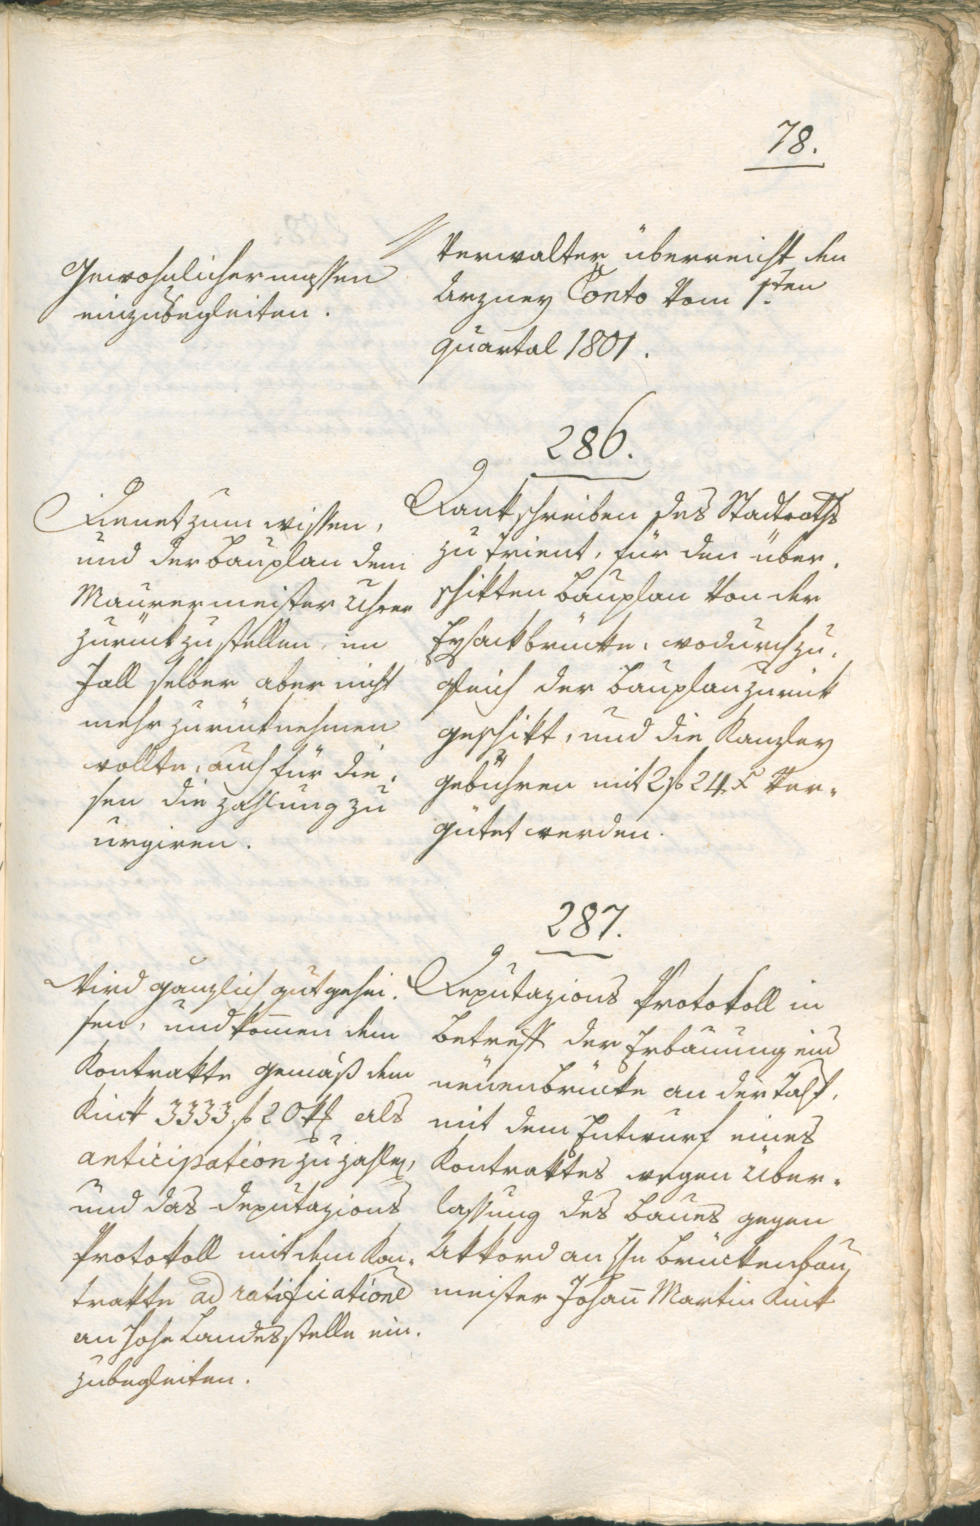 78.
Gewohnlichermassen
einzubegleiten.
Verwalter überreicht den
Arzney Conto vom 1sten
quartal 1801.
286.
Dienet zum wissen,
und der Bauplan dem
Maurermeister
zurükzustellen, im
Fall selber aber nicht
mehr zurüknehmen
wollte, auch für die-
sen die Zahlung zu
urgiren.
Dankschreiben des Stadtraths
zu Trient, für den über-
schikten Bauplan von der
Eysackbrücke, wodurch zu-
gleich der Bauplan zurück
geschikt, und die Kanzley
gebühren mit 2 f 24 x ver-
gütet werden.
287.
Wird gänzlich gutgehei-
sen, und kommen dem
Kontrakte gemäß dem
Kink 3333 f 20 x als
anticipation zu zahlen,
und das Deputazions
Protokoll mit dem Kon-
trakte ad ratificatione
an hohe Landesstelle ein-
zubegleiten.
Deputazions Protokoll in
Betreff der Erbauung eine
neuen Brücke an der Talf,
mit dem Entwurf eines
Kontraktes wegen Über-
lassung des Baues gegen
Akkord an Hn Brückenbau
meister Johann Martin Kink